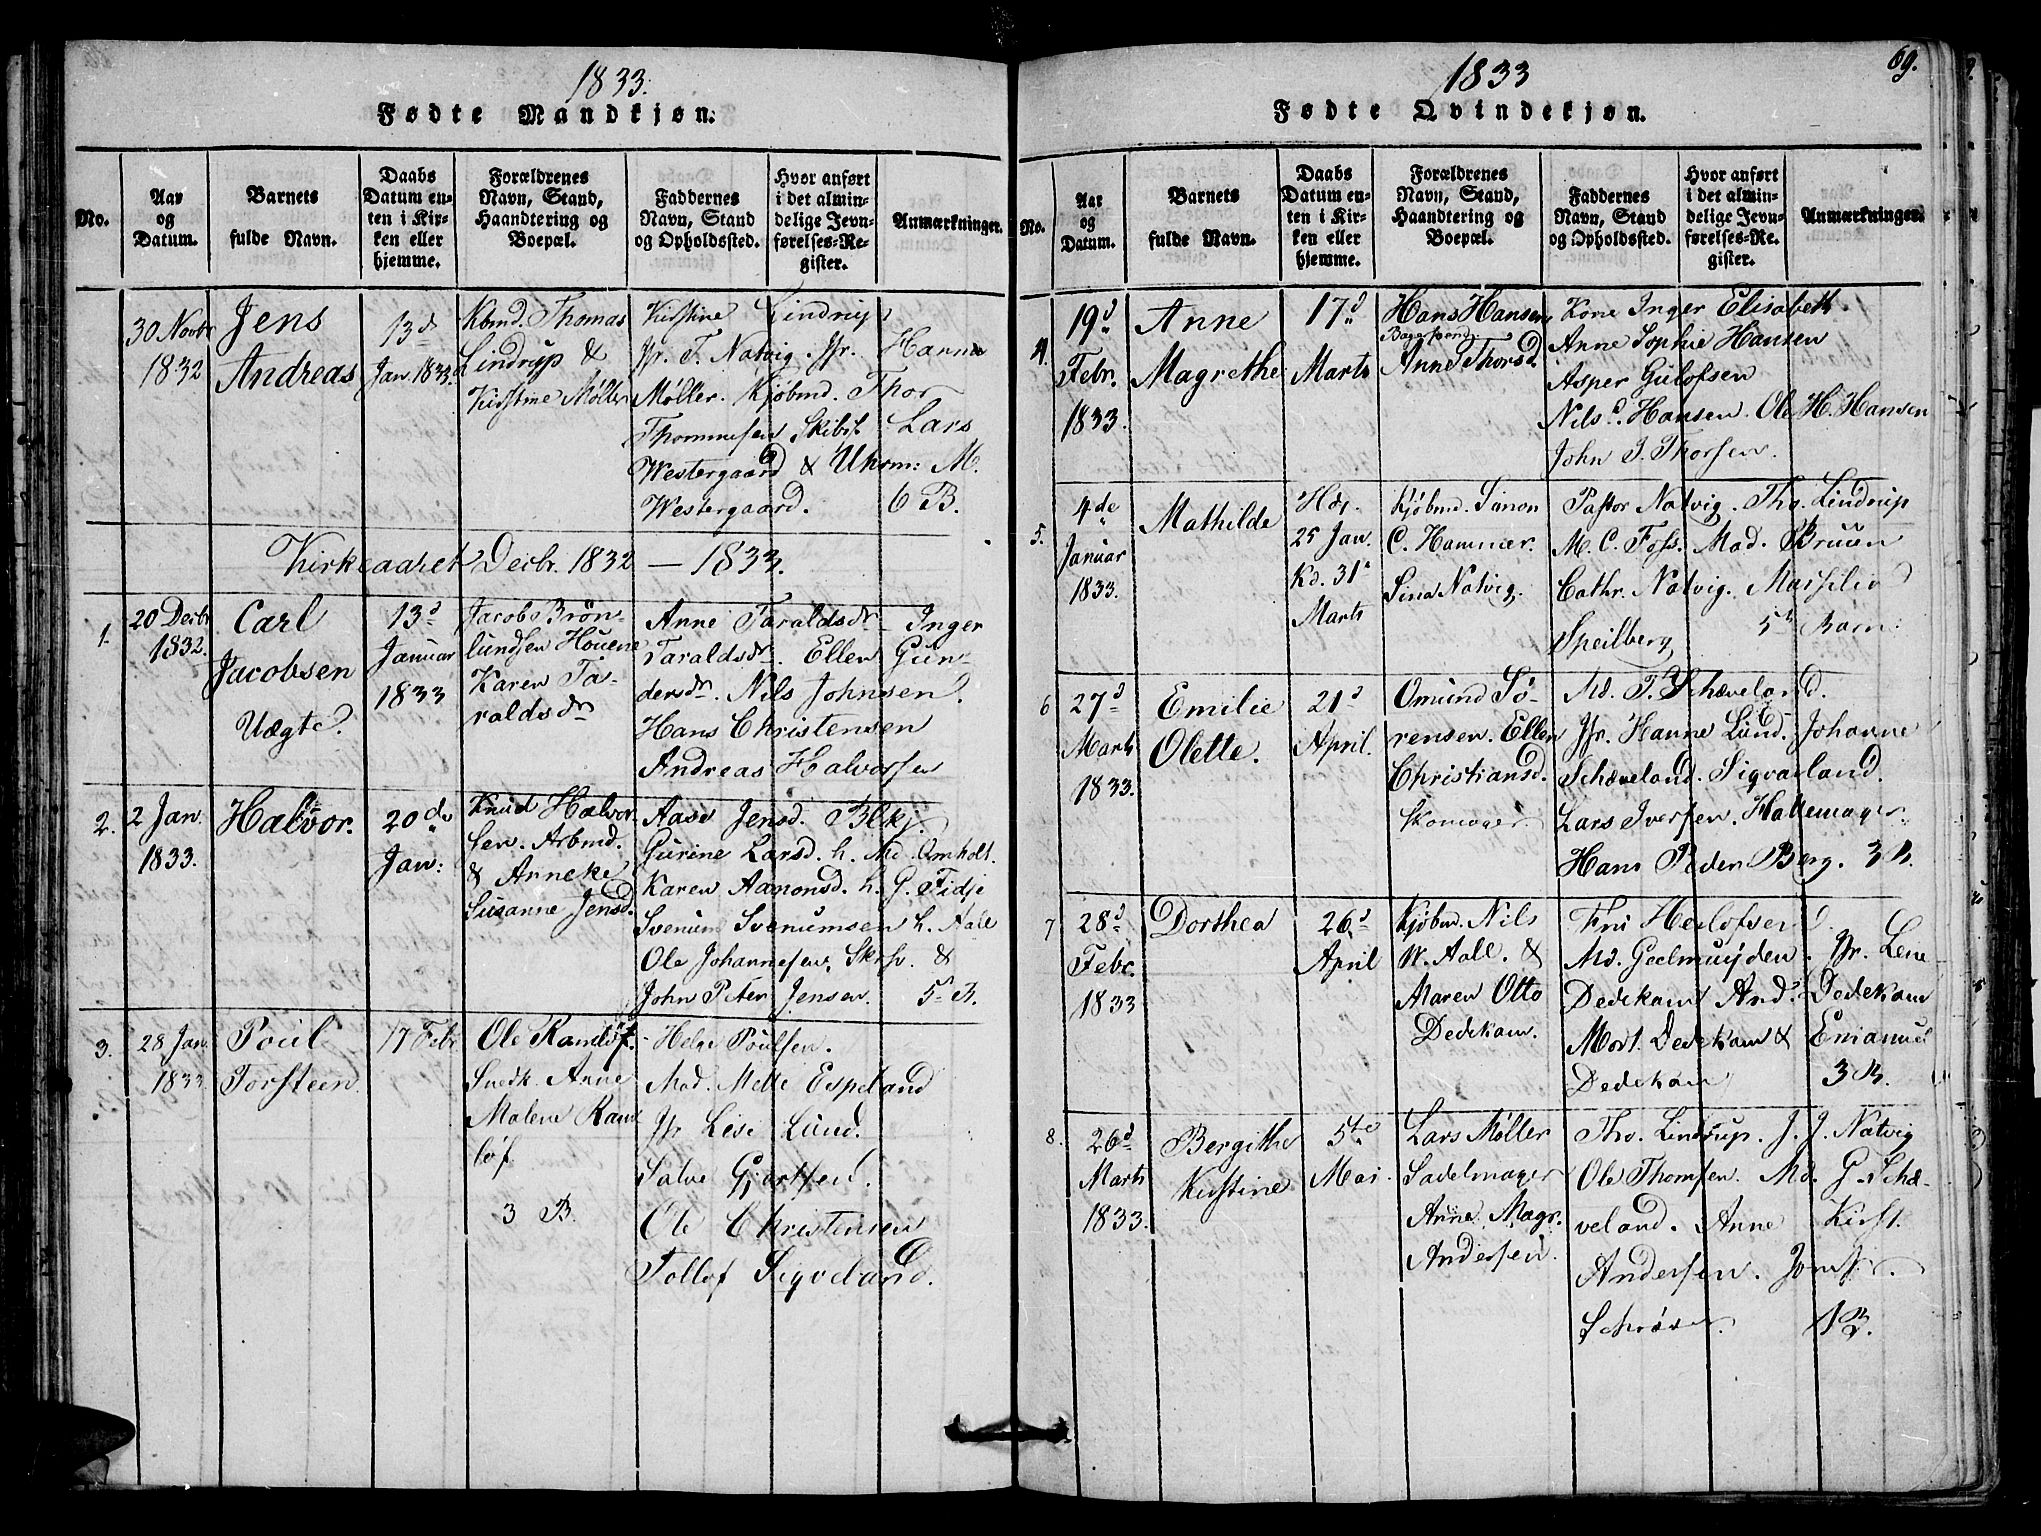 1833.
Fødte Mandkjøn.
No.
Aar
og
Datum.
Barnets
fulde Navn.
Daabs
Datum en-
ten i Kir-
ken eller
hjemme.
Forældrenes
Navn, Stand,
Haandtering og
Boepæl.
Faddernes
Navn, Stand
og Opholdssted.
Hvor anført
i det almin-
delige Jevn-
førelses-Re-
gister.
Anmærkninger.
30 Novbr
1832
Jens
Andreas
13d
Jan 1833.
Kbmd. Thomas
Lindrup &
Kirstine Møller
Kirstine Lindrup
Jfr. F. Natvig. Jfr. Hanne
Møller. Kjøbmd. Thor
Thommesen Skibsf. Lars
Westergaard & Uhrm: M.
Westergaard. 6 B.
Kirkeaaret Decbr. 1832 — 1833.
1.
20 Decbr
1832.
Carl
Jacobsen
Uægte.
13d
Januar
1833
Jacob Brön-
lundsen Houene
Karen Ta-
raldsdr
Anne Taraldsdr Inger
Taraldsdr. Ellen Gun-
dersdr. Nils Johnsen
Hans Christensen
Andreas Halvorsen
2.
2 Jan.
1833.
Halvor.
20de
Jan:
Knud Halvor-
sen. Arbmd.
& Anneke
Susanne Jensd.
Aase Jensd. Blkj.
Gurine Larsd. h. Md. Omholt.
Karen Aamonsd. h. G. Fidje
Svenum Svenumsen h. Aall
Ole Johannesen, Skrfv. &
John Peter Jensen. 5 B.
3.
28 Jan.
1833.
Poul
Torsteen.
17 Febr
Ole Ramløf.
Snedk. Anne
Malene Ram
løf.
3 B.
Helge Poulsen.
Mad. Mette Espeland
Jfr Lise Lund.
Salve Gjertsen.
Ole Christensen
Tollof Siqveland.
1833
69.
Fødte Qvindekjøn.
No.
Aar
og
Datum.
Barnets
fulde Navn.
Daabs
Datum en-
ten i Kir-
ken eller
hjemme.
Forældrenes
Navn, Stand,
Haandtering og
Boepæl.
Faddernes
Navn, Stand
og Opholdssted.
Hvor anført
i det almin-
delige Jevn-
førelses-Re-
gister.
Anmærkninger.
4.
19d
Febr.
1833.
Anne
Magrethe
17d
Marts
Hans Hansen
Anne Thorsd.
Kone Inger Elisabeth
Anne Sophie Hansen
Asper Gulofsen
Nils Hansen. Ole H. Hansen
John J. Thorsen.
5.
4de
Januar
1833.
Mathilde
25 Jan.
Kd. 31
Marts
Kjöbmd. Simon
C. Hammer.
Sina Natvig.
Pastor Natvig. Tho. Lindrup
M. C. Foss. Mad. Bruun
Cathr. Natvig. Marsilie
Speilberg 5t Barn:
6
27d
Marts
1833.
Emilie
Olette.
21d
April.
Omund Sö-
rensen. Ellen
Christiansd.
Skomager.
Md. T. Schæveland.
Jfr. Hanne Lund. Johanne
Schæveland. Siqvaland.
Lars Iversen. Hattemager.
Hans Peder Berg. 3 B.
7
28d
Febr.
1833
Dorthea
26d
April
Kjøbmd. Nils
W. Aall. &
Maren Otto
Dedekam.
Fru Herlofsen.
Md. Geelmuyden. Jfr. Lene
Dedekam And. Dedekam
Mort. Dedekam & Emanuel
Dedekam 3 B.
8.
26d
Marts
1833.
Bergithe
Kirstine
5te
Mai.
Lars Møller
Sadelmager
Anne Magr.
Andersen.
Tho. Lindrup. J. J. Natvig
Ole Thomsen. Md. G. Schæ-
veland. Anne Kirst.
Andersen. Jomfr.
Schrøder. 1 B.